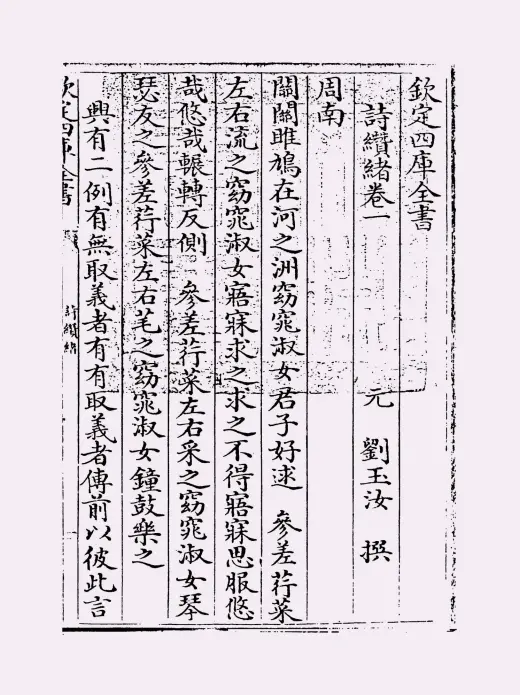 欽定四庫全書
詩纘緒卷一
元 劉玉汝 撰
周南
關關雎鳩在河之洲窈窕淑女君子好逑 參差荇菜
左右流之窈窕淑女寤寐求之求之不得寤寐思服悠
哉悠哉輾轉反側 參差荇菜左右采之窈窕淑女琴
瑟友之參差荇菜左右芼之窈窕淑女鐘鼓樂之
興有二例有無取義者有有取義者傳前以彼此言
欽定四庫全書
詩纘緒